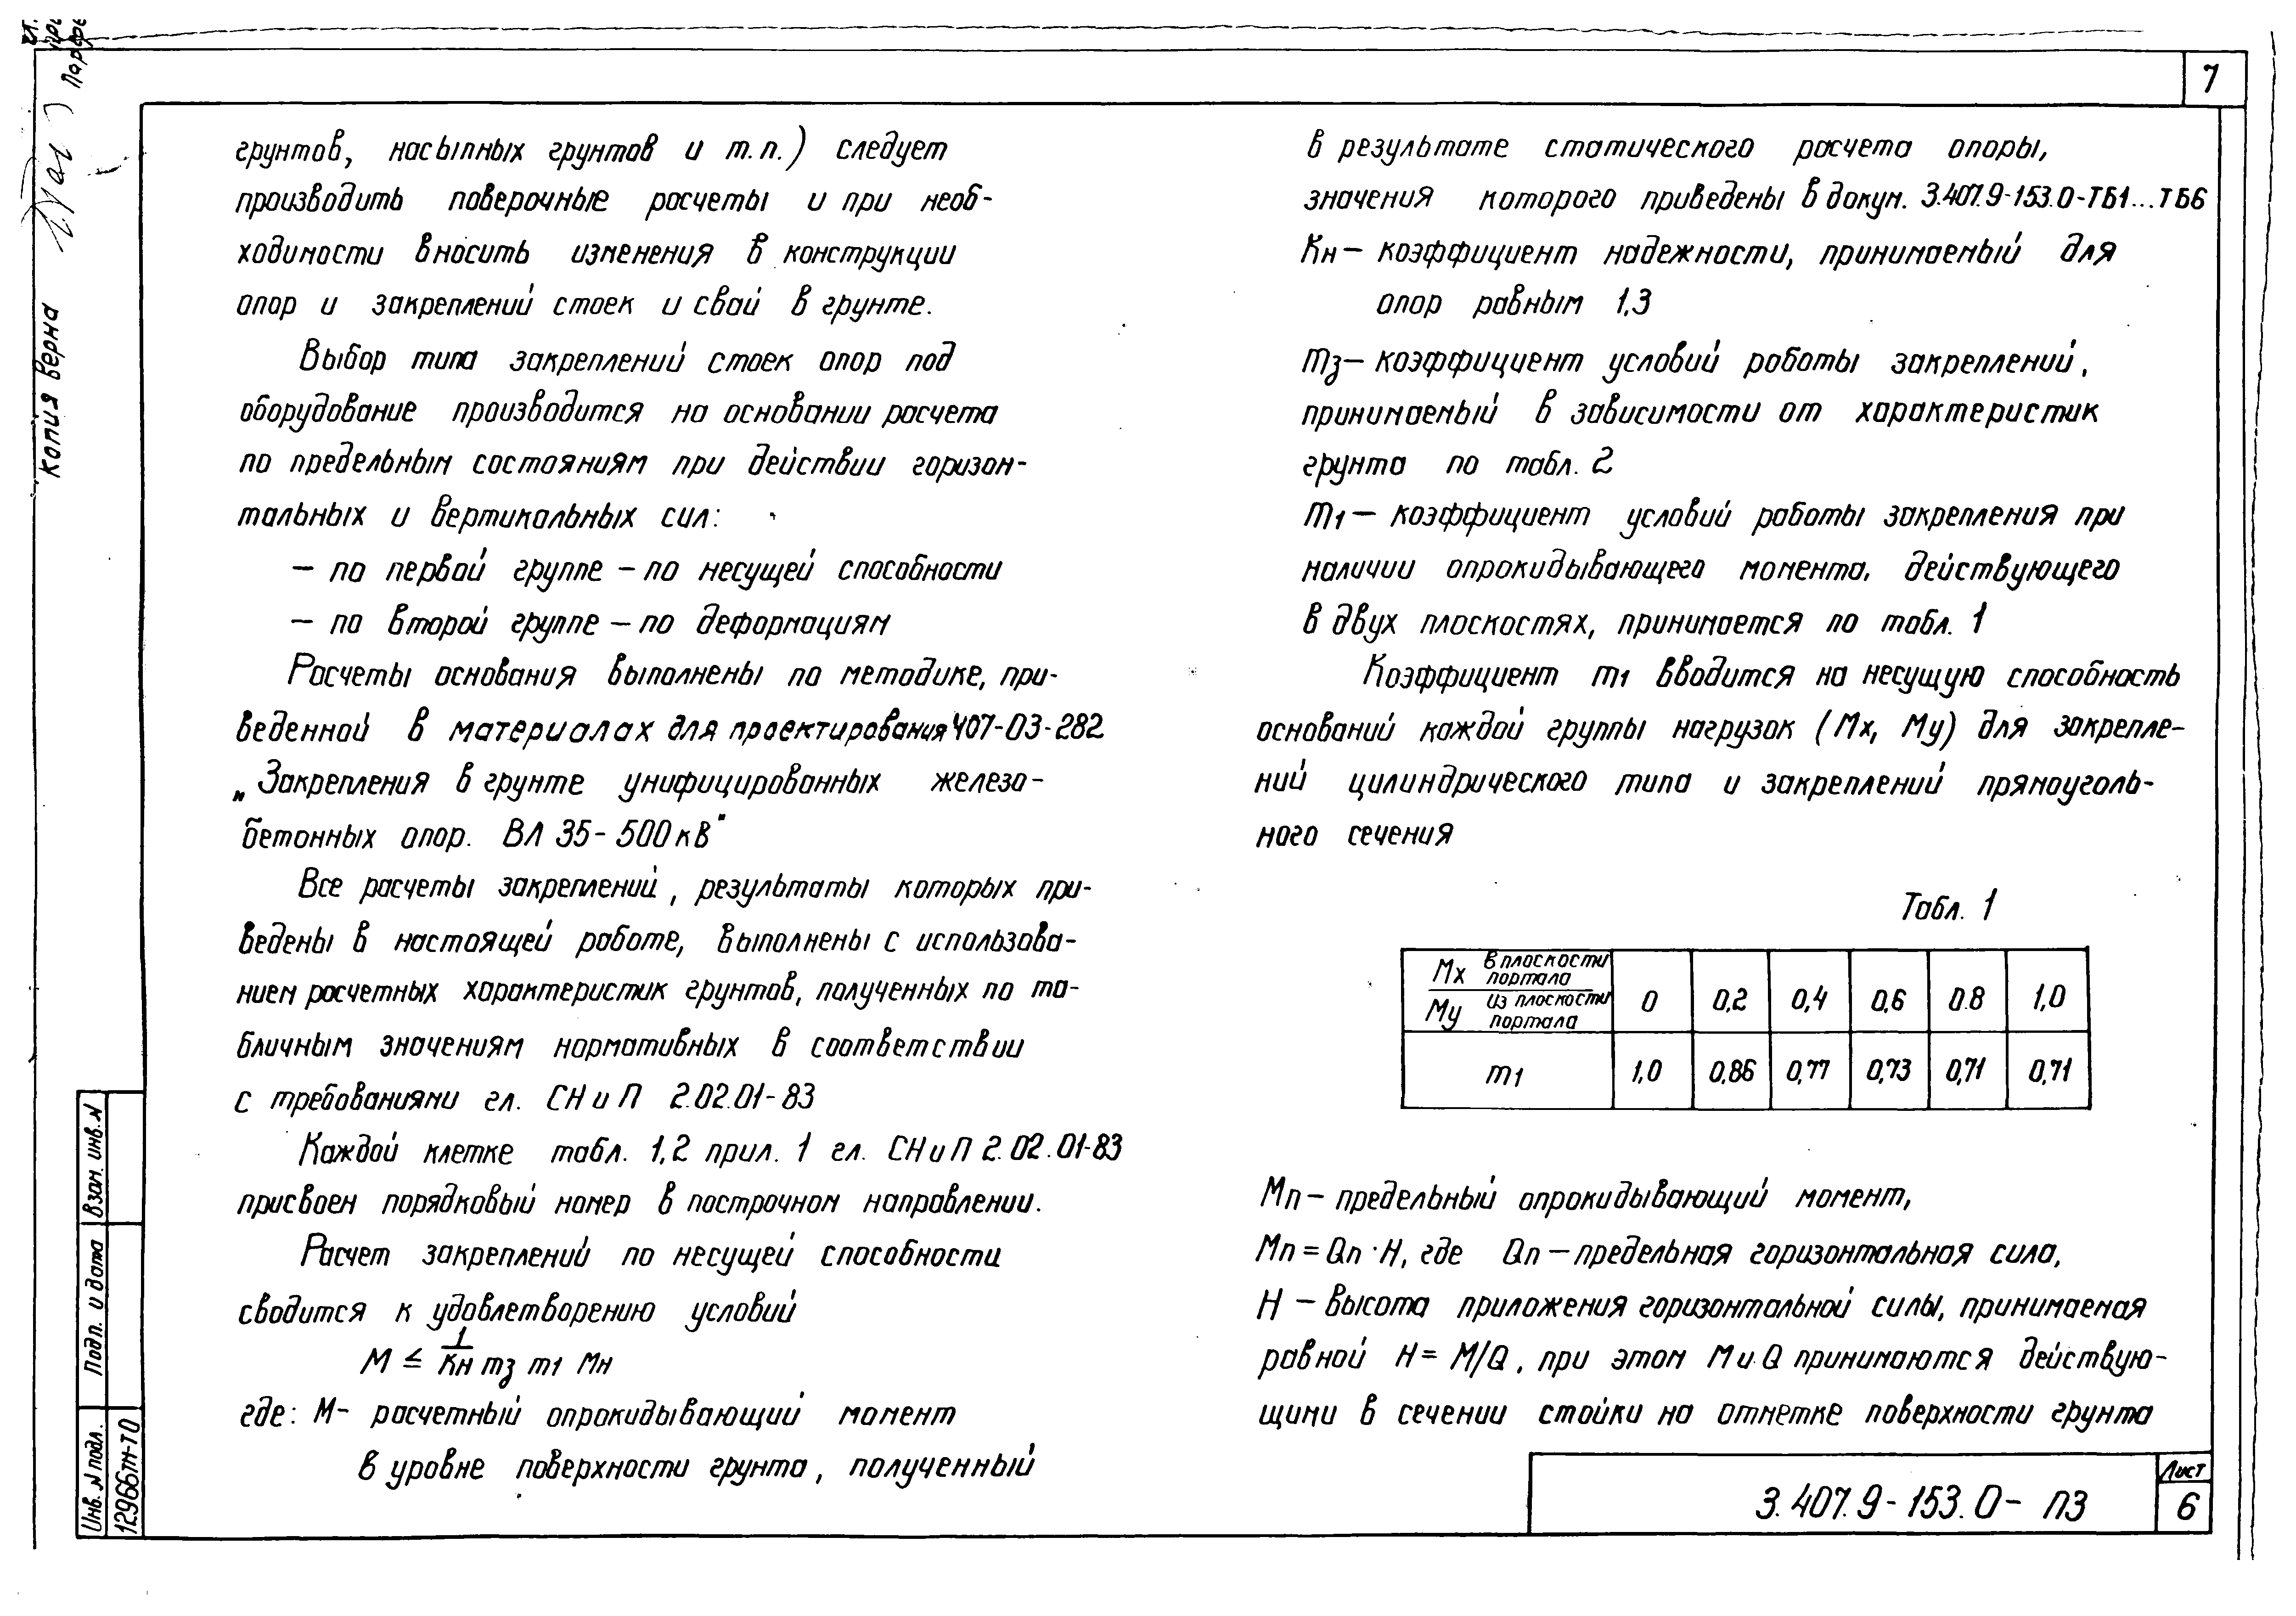 7
грунтов, насыпных грунтов и т.п.) следует
производить поверочные расчеты и при необ-
ходимости вносить изменения в конструкции
опор и закреплений стоек и свай в грунте.
Выбор типа закреплений стоек опор под
оборудование производится на основании расчета
по предельным состояниям при действии горизон-
тальных и вертикальных сил:
– по первой группе – по несущей способности
– по второй группе – по деформациям
Расчеты основания выполнены по методике, при-
веденной в материалах для проектирования 407-03-282
„Закрепления в грунте унифицированных железо-
бетонных опор. ВЛ 35-500кВ"
Все расчеты закреплений, результаты которых при-
ведены в настоящей работе, выполнены с использова-
нием расчетных характеристик грунтов, полученных по та-
бличным значениям нормативных в соответствии
с требованиями гл. СНиП 2.02.01-83
Каждой клетке табл. 1,2 прил. 1 гл. СНиП 2.02.01-83
присвоен порядковый номер в построчном направлении.
Расчет закреплений по несущей способности
сводится к удовлетворению условий
M ≤ 1/Kн mз m1 Mн
где: M- расчетный опрокидывающий момент
в уровне поверхности грунта, полученный
в результате статического расчета опоры,
значения которого приведены в докум. 3.407.9-153.0-ТБ1...ТБ6
Kн – коэффициент надежности, принимаемый для
опор равным 1,3
mз – коэффициент условий работы закреплений,
принимаемый в зависимости от характеристик
грунта по табл. 2
m1 – коэффициент условий работы закрепления при
наличии опрокидывающего момента, действующего
в двух плоскостях, принимается по табл. 1
Коэффициент m1 вводится на несущую способность
оснований каждой группы нагрузок (Mx, My) для закрепле-
ний цилиндрического типа и закреплений прямоуголь-
ного сечения
Табл. 1
Mx в плоскости портала / My из плоскости портала 0 0,2 0,4 0,6 0.8 1,0
m1 1,0 0,86 0,77 0,73 0,71 0,71
Mп – предельный опрокидывающий момент,
Mп = Qп · H, где Qп – предельная горизонтальная сила,
H – высота приложения горизонтальной силы, принимаемая
равной H = M/Q, при этом M и Q принимаются действую-
щими в сечении стойки на отметке поверхности грунта
3.407.9-153.0- ПЗ
Лист
6
Копия верна
Взам. инв. N
Подп. и дата
Инв. N подл.
12966тм-Т0